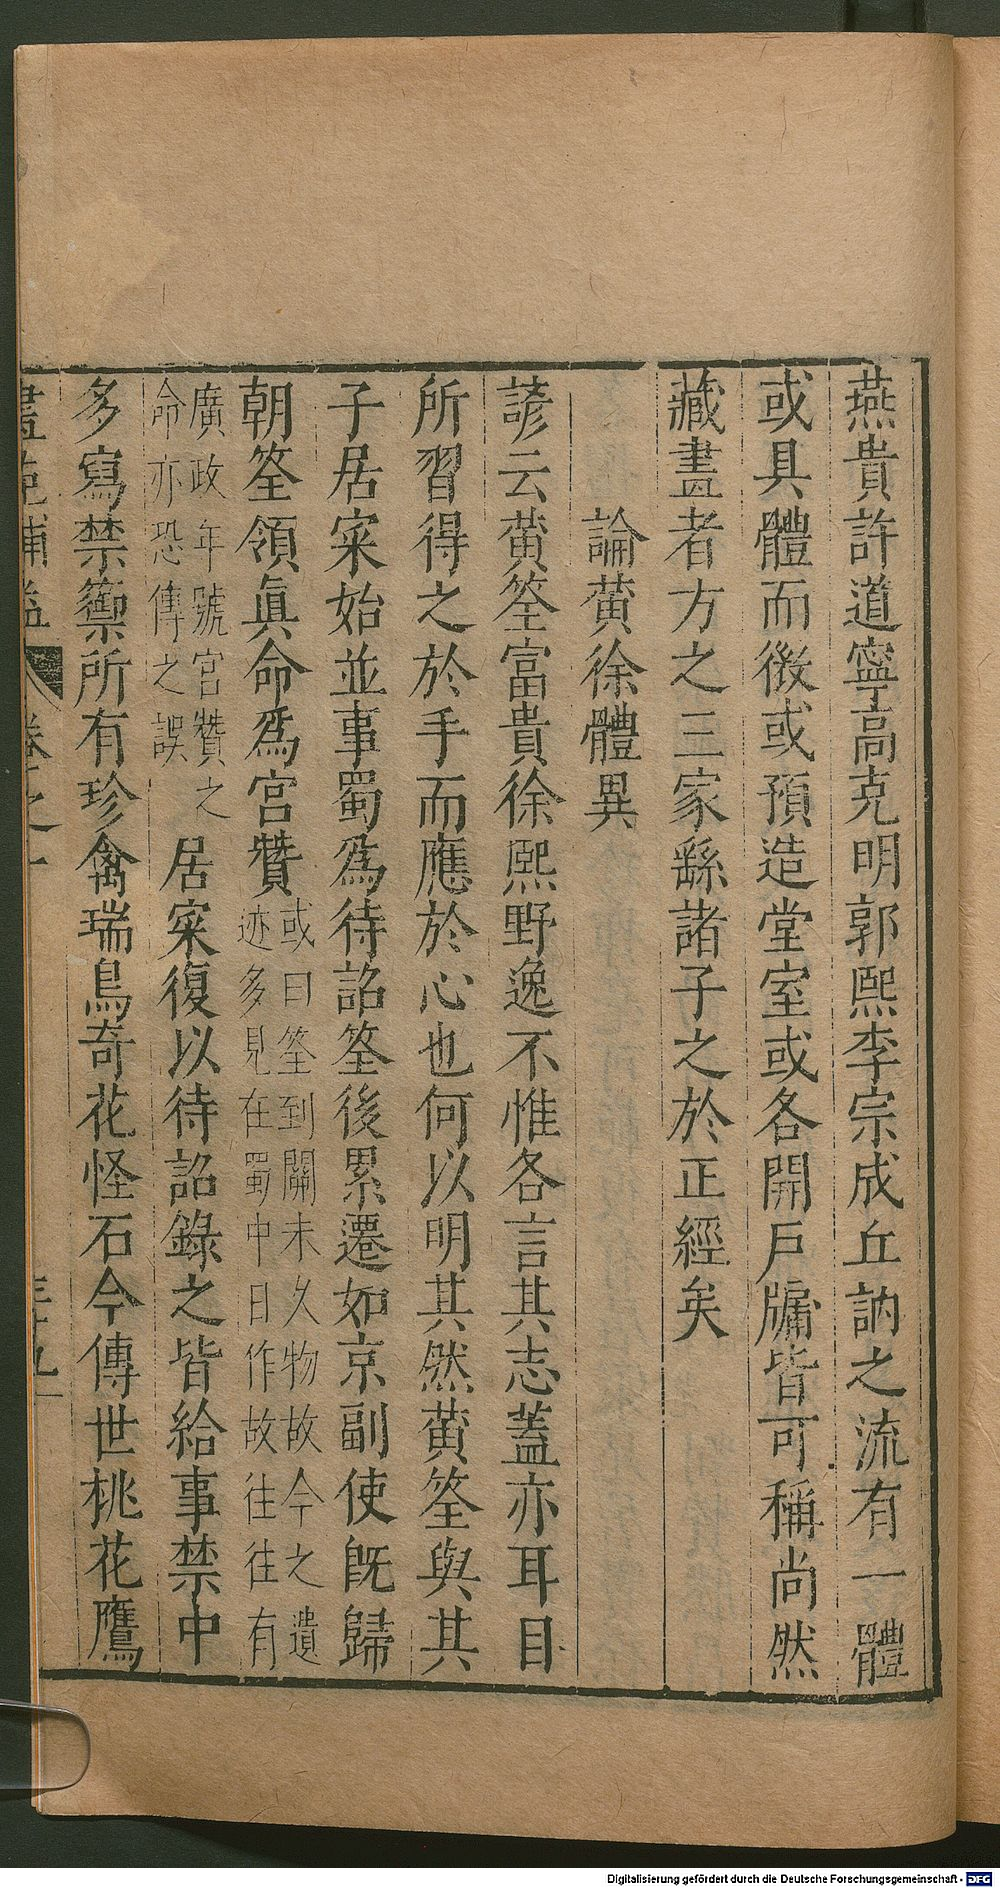 燕貴許道寧高克明郭熙李宗成丘訥之流有一體
或具體而微或預造堂室或各開戶牖皆可稱尚然
藏畫者方之三家繇諸子之於正經矣
論黄徐體異
諺云黄筌富貴徐熙野逸不惟各言其志蓋亦耳目
所習得之於手而應於心也何以明其然黄筌與其
子居寀始並事蜀爲待詔筌後累遷如京副使旣歸
朝筌領眞命爲宮贊
或曰筌到闕未久物故今之遺
迹多見在蜀中日作故往往有
廣政年號宮贊之
命亦恐傳之誤
居寀復以待詔錄之皆給事禁中
多寫禁籞所有珍禽瑞鳥奇花怪石今傳世桃花鷹
畫苑補益 卷之一 三十九
Digitalisierung gefördert durch die Deutsche Forschungsgemeinschaft - DFG